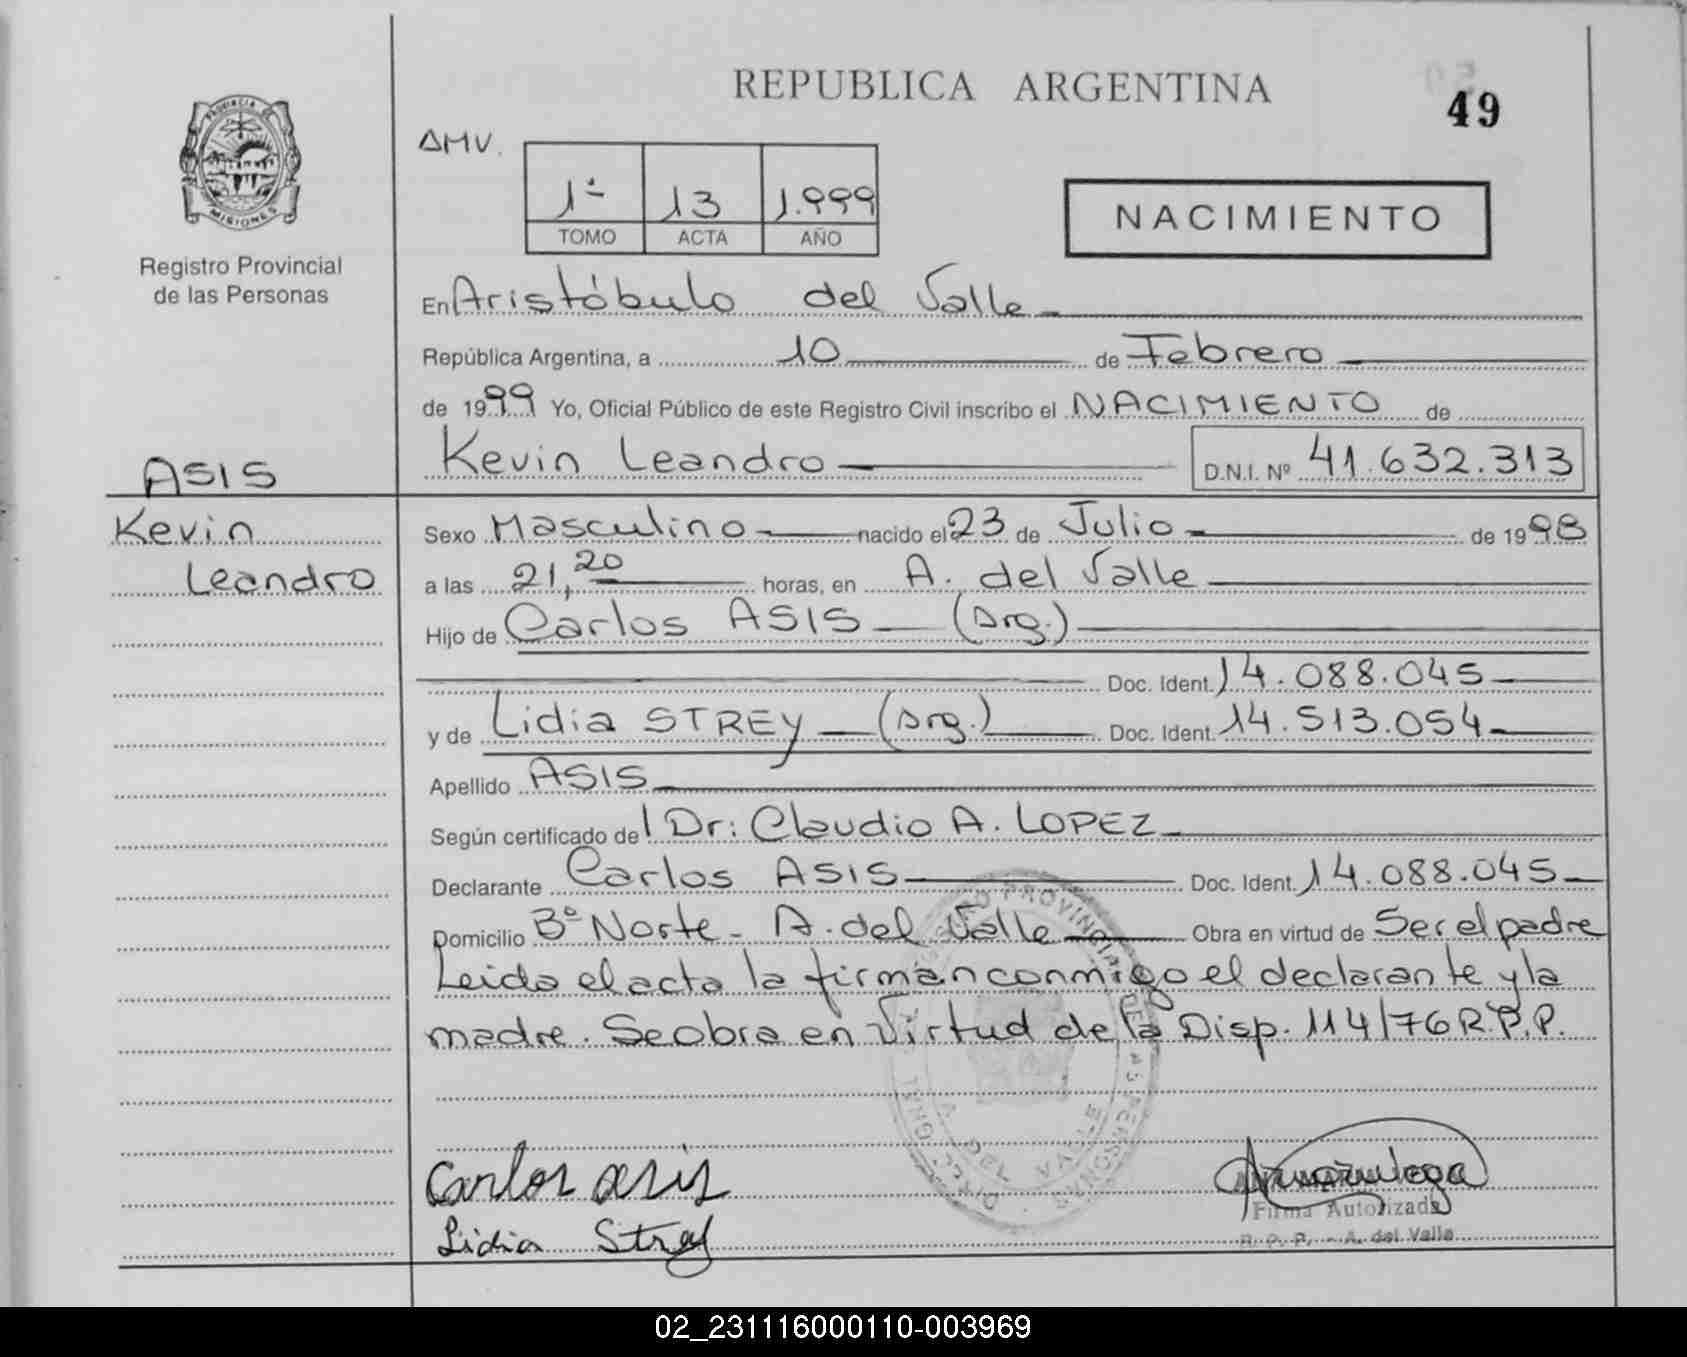 REPUBLICA ARGENTINA
49
PROVINCIA DE
MISIONES
Registro Provincial
de las Personas
AMV.
1º 13 1.999
TOMO ACTA AÑO
NACIMIENTO
En Aristóbulo del Valle
República Argentina, a 10 de Febrero
de 1999 Yo, Oficial Público de este Registro Civil inscribo el NACIMIENTO de
Kevin Leandro D.N.I. Nº 41.632.313
ASIS
Kevin
Leandro
Sexo Masculino nacido el 23 de Julio de 1998
a las 21,20 horas, en A. del Valle
Hijo de Carlos ASIS (Arg.)
Doc. Ident. 14.088.045
y de Lidia STREY (Arg.) Doc. Ident. 14.513.054
Apellido ASIS
Según certificado del Dr: Claudio A. LOPEZ
Declarante Carlos ASIS Doc. Ident. 14.088.045
Domicilio Bº Norte - A. del Valle Obra en virtud de Ser el padre
Leida el acta la firman conmigo el declarante y la
madre. Se obra en Virtud de la Disp. 114/76 R.P.P.
Carlos asis
Lidia Strey
Firma Autorizada
R. P. P. - A. del Valle
02_231116000110-003969